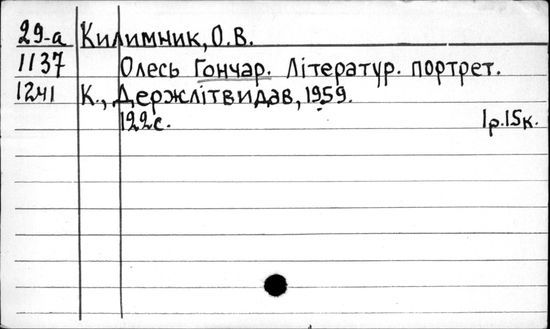 29-а Килимник, О.В.
1137 Олесь Гончар. Літератур. портрет.
1241 К., Держлітвидав, 1959.
122с. 1р.15к.